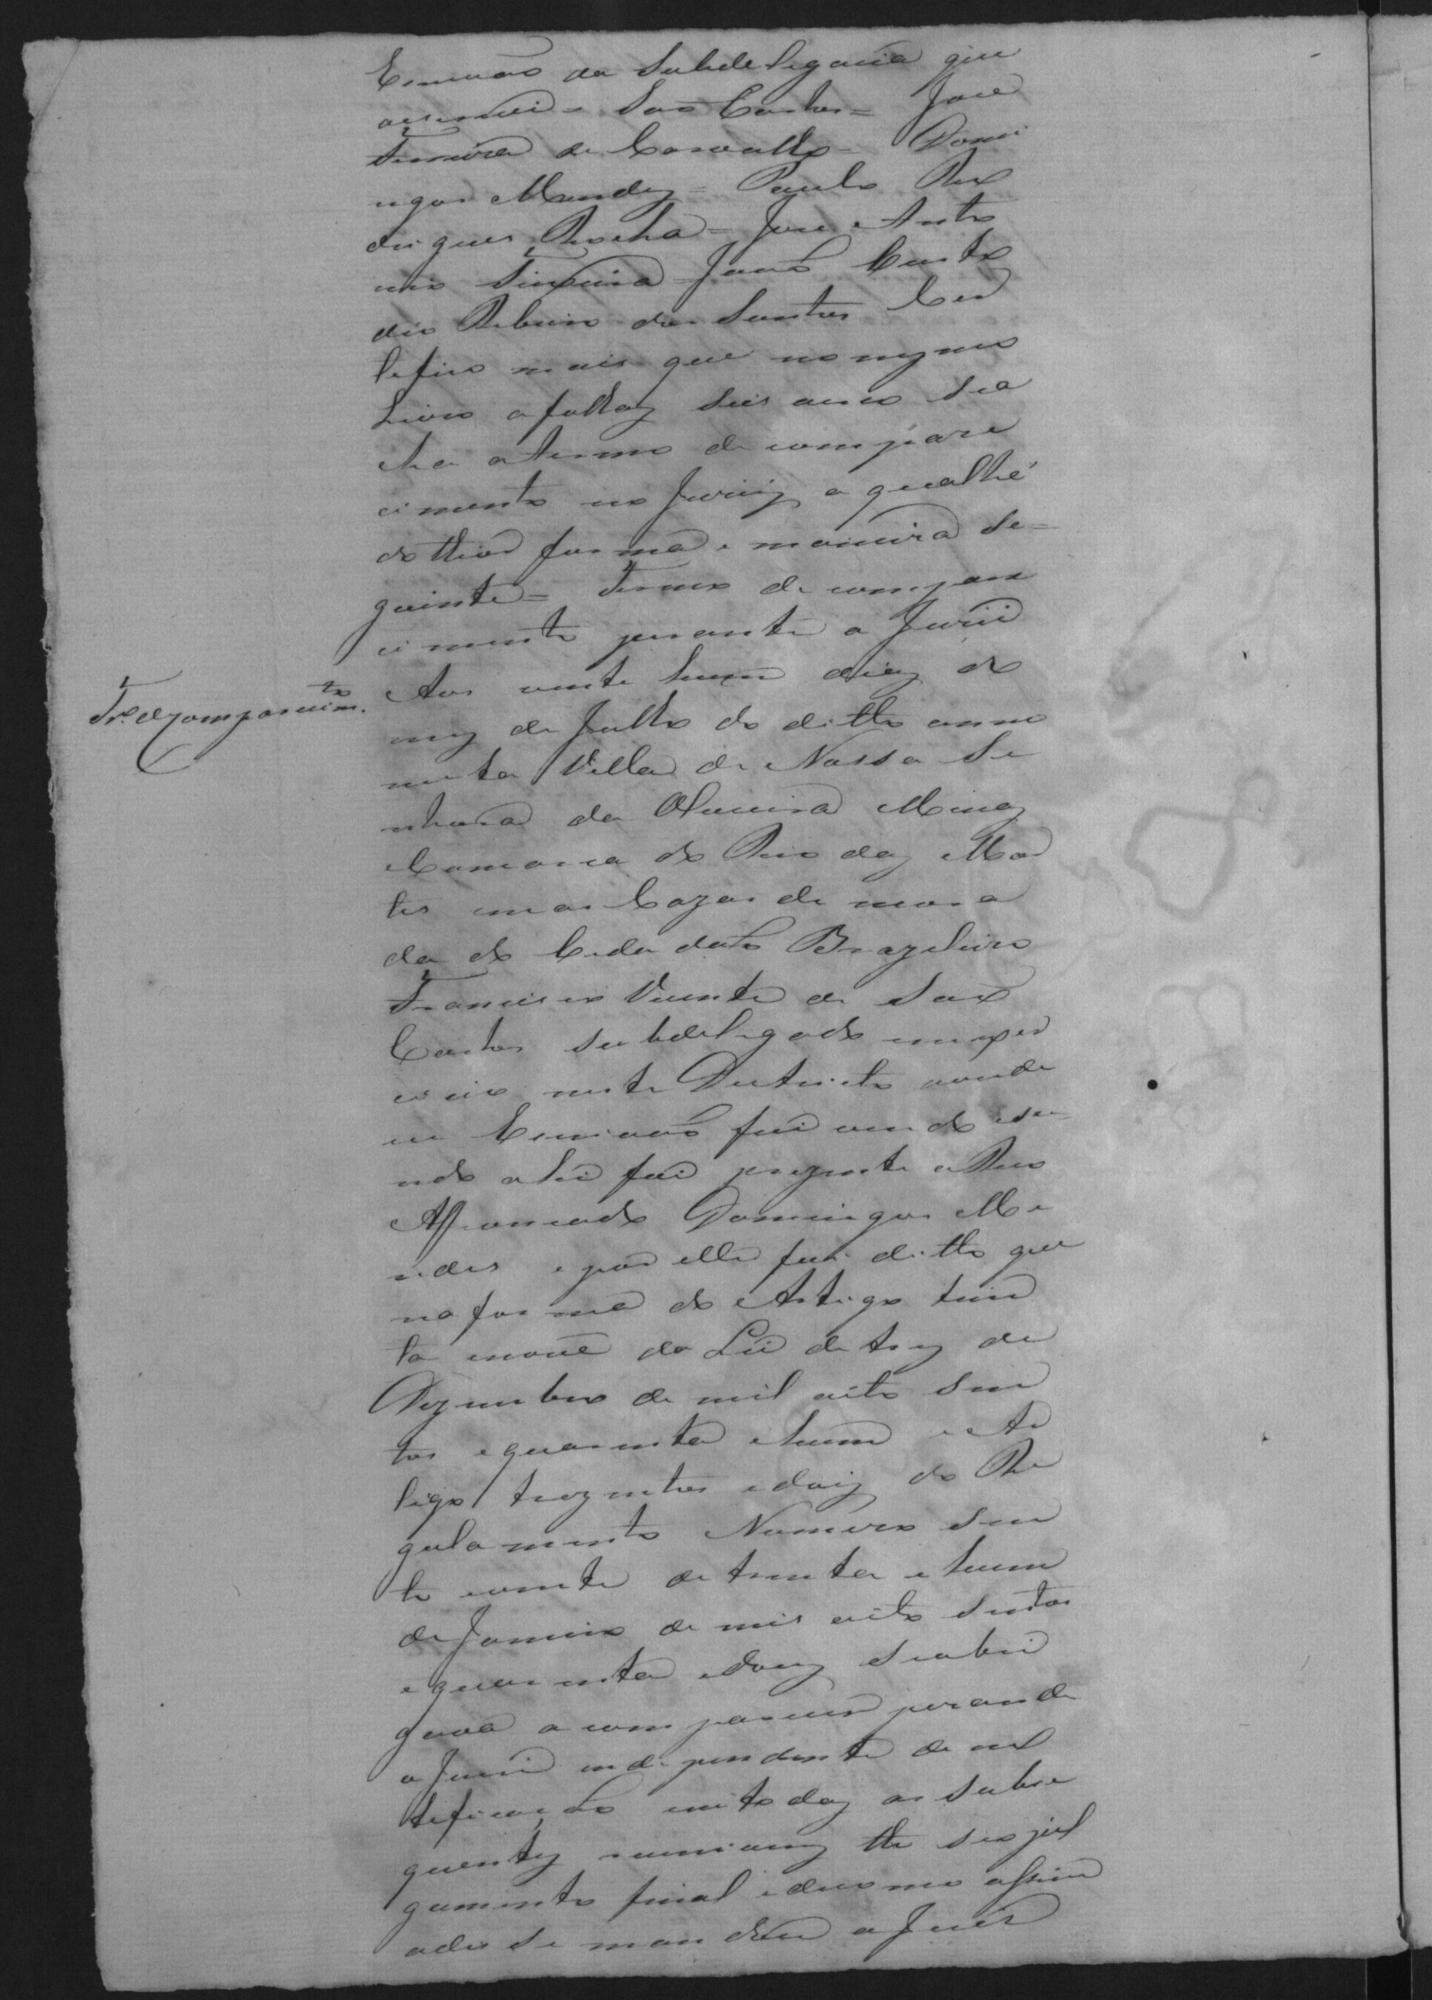 Escrivão da Subdelegacia que
escrevi = São Carlos = José
Ferreira de Carvalho = Domi
ngos Mendes = Paulo Ro
drigues Rocha = José Anto
nio Teixeira João Custo
dio Ribeiro dos Santos Cer
tefico mais que no mesmo
Livro a folhas seis verso sea
cha o termo de compare
cimento no Juri, o qual he
do theor forma e maneira se=
guinte = Termo de compare
cimento perante o Juri
Tr.º de comparecim.to
Aos vinte hum dias do
mez de Julho do ditto anno
nesta Villa de Nossa Se
nhora da Oliveira Minas
Comarca do Rio das Mor
tes em as Cazas de mora
da do Cidadão Brazileiro
Francisco Vicente de São
Carlos subdelegado em exer
cicio neste Destricto aonde
eu Escrivão fui vindo e se=
ndo ahi foi prezente o Reo
Affiancado Domingos Me
ndes e por elle foi ditto que
na forma do Artigo trin
ta e nove da Lei de trez de
Dezembro de mil oito cen
tos e quarenta e hum e Ar
tigo trezentos e dois do Re
gulamento Numero cen
to e vinte de trinta e hum
de Janeiro de mil oito centos
e quarenta e dois se obri
gava a comparecer perante
o Juri independente de no
teficação em todas as subse
quentes reunioens the seo jul
gamento final e de como assim
o disse mandou o Juis